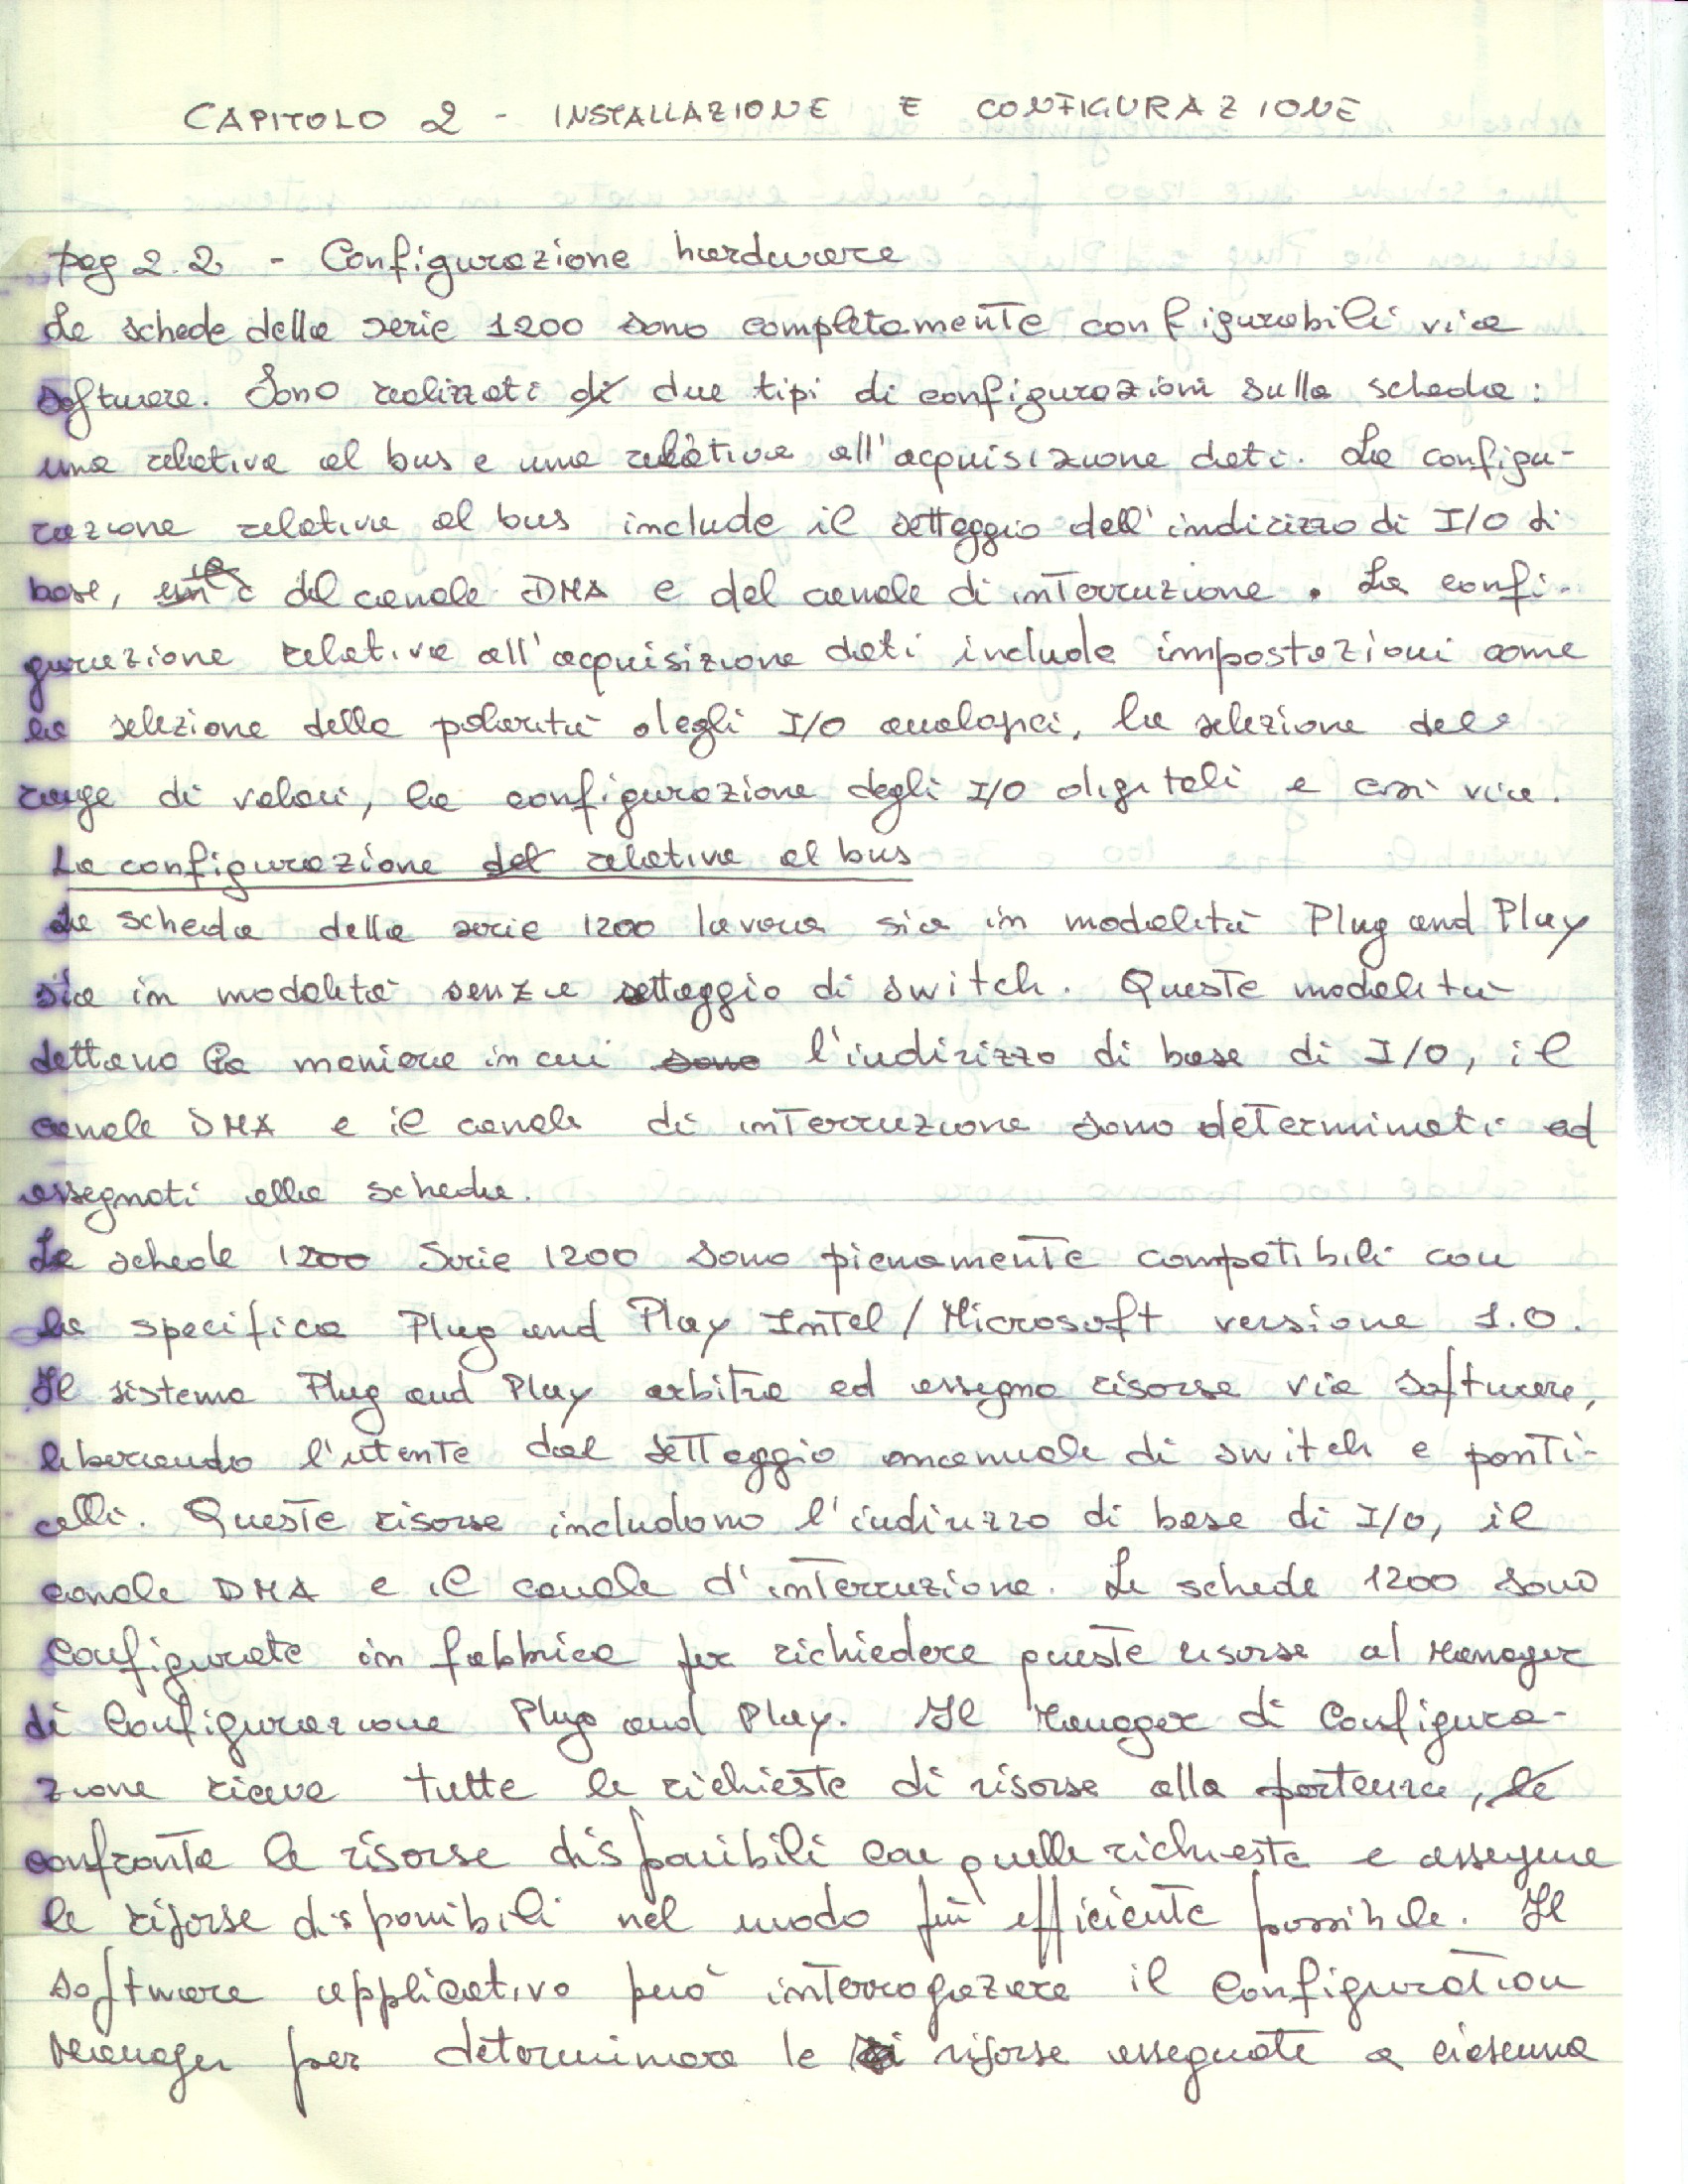 CAPITOLO 2 - INSTALLAZIONE E CONFIGURAZIONE
pag 2.2 - Configurazione hardware
Le schede della serie 1200 sono completamente configurabili via
software. Sono realizzati di due tipi di configurazioni sulla scheda:
una relativa al bus e una relativa all'acquisizione dati. La configu-
razione relativa al bus include il settaggio dell'indirizzo di I/O di
base, del canale DMA e del canale di interruzione. La confi-
gurazione relativa all'acquisizione dati include impostazioni come
la selezione della polarità degli I/O analogici, la selezione del
range di valori, la configurazione degli I/O digitali e così via.
La configurazione del relativa al bus
La scheda della serie 1200 lavora sia in modalità Plug and Play
sia in modalità senza settaggio di switch. Queste modalità
dettano la maniera in cui sono l'indirizzo di base di I/O, il
canale DMA e il canale di interruzione sono determinati ed
assegnati alla scheda.
Le schede 1200 Serie 1200 sono pienamente compatibili con
la specifica Plug and Play Intel / Microsoft versione 1.0.
Il sistema Plug and Play arbitra ed assegna risorse via software,
liberando l'utente dal settaggio manuale di switch e ponti-
celli. Queste risorse includono l'indirizzo di base di I/O, il
canale DMA e il canale d'interruzione. Le schede 1200 sono
configurate in fabbrica per richiedere queste risorse al Manager
di Configurazione Plug and Play. Il Manager di Configura-
zione riceve tutte le richieste di risorse alla partenza, le
confronta le risorse disponibili con quelle richieste e assegna
le risorse disponibili nel modo più efficiente possibile. Il
software applicativo può interrogazare il Configuration
Manager per determinare le risorse assegnate a ciascuna